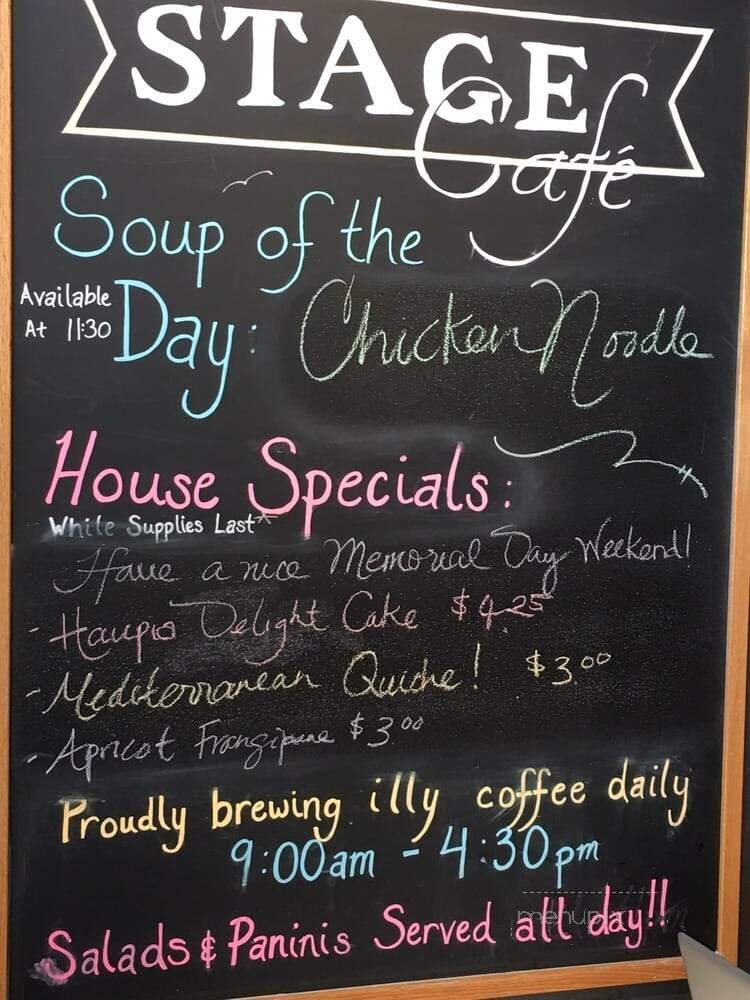 STAGE
Café
Soup of the
Available
At 11:30
Day: Chicken Noodle
House Specials:
While Supplies Last*
Have a nice Memorial Day Weekend!
- Haupia Delight Cake $4.25
- Mediterranean Quiche! $3.00
- Apricot Frangipane $3.00
Proudly brewing illy coffee daily
9:00am - 4:30pm
Salads & Paninis Served all day!!